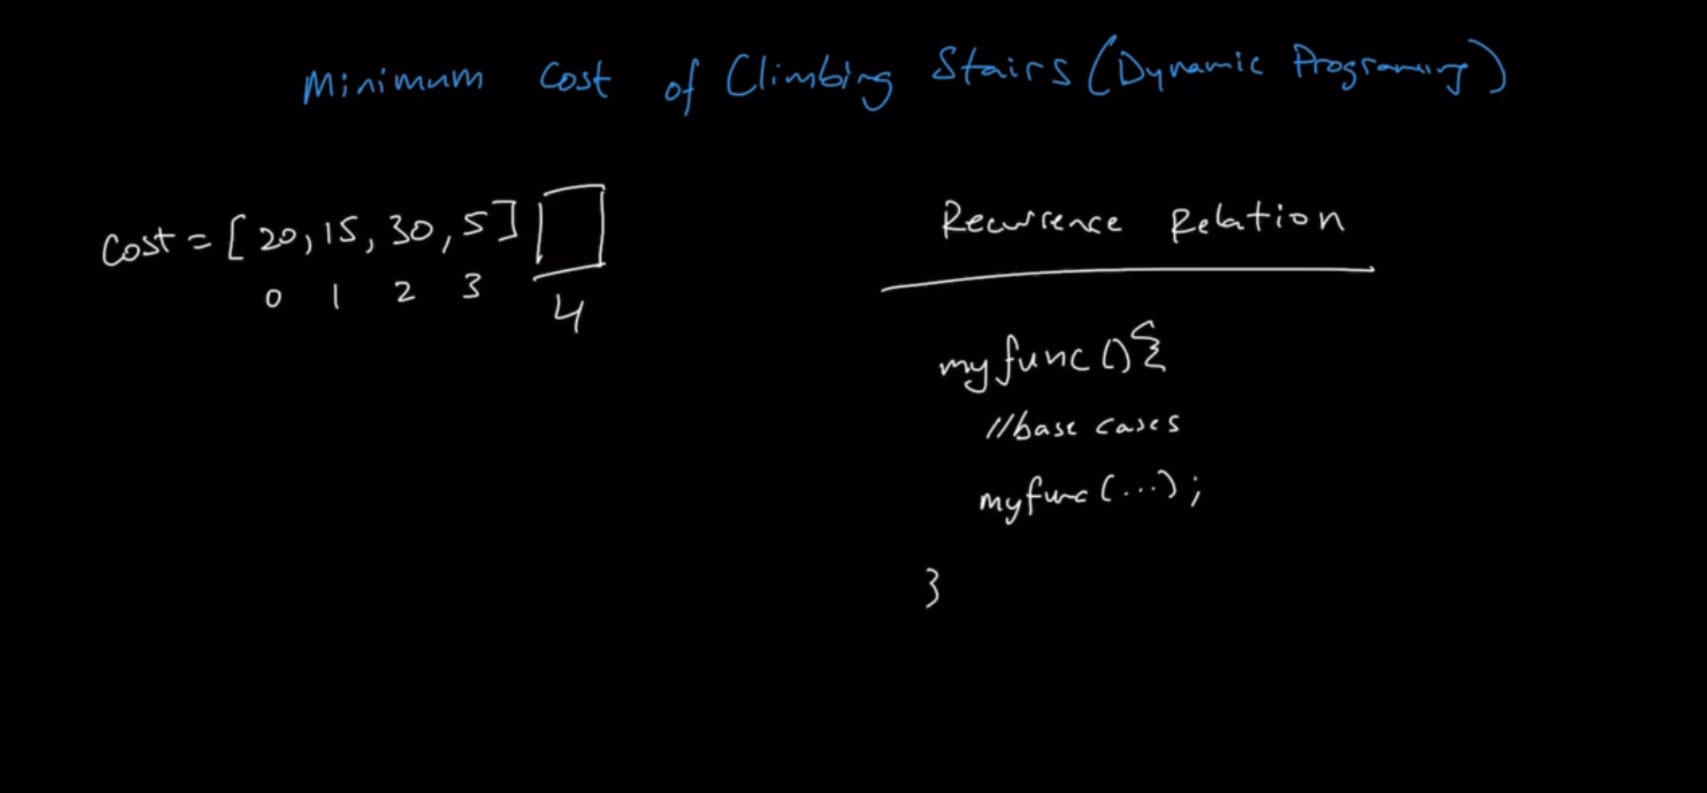 Minimum Cost of Climbing Stairs (Dynamic Programing)
Cost = [20, 15, 30, 5]
0 1 2 3 4
Recurrence Relation
myfunc(){
//base cases
myfunc(...);
}